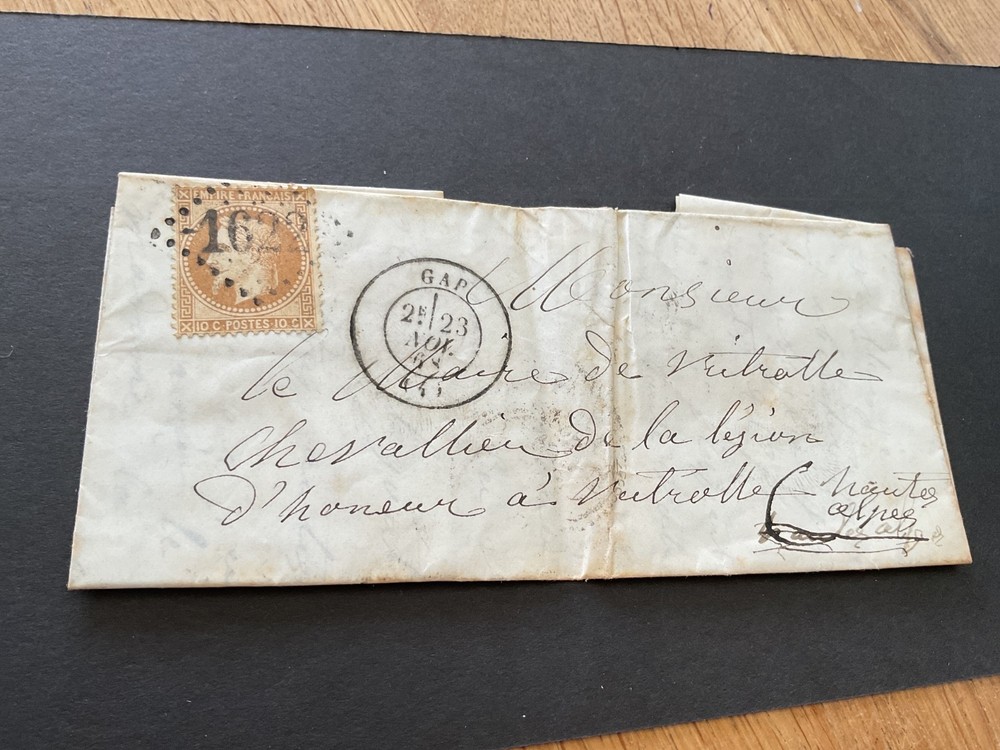 EMPIRE FRANÇAIS
162
10 C. POSTES 10 C.
GAP
2E 23
NOV.
68
(4)
Monsieur
le Maire de vitrolle
chevallier de la légion
d'honeur à vitrolle
hautes
alpes